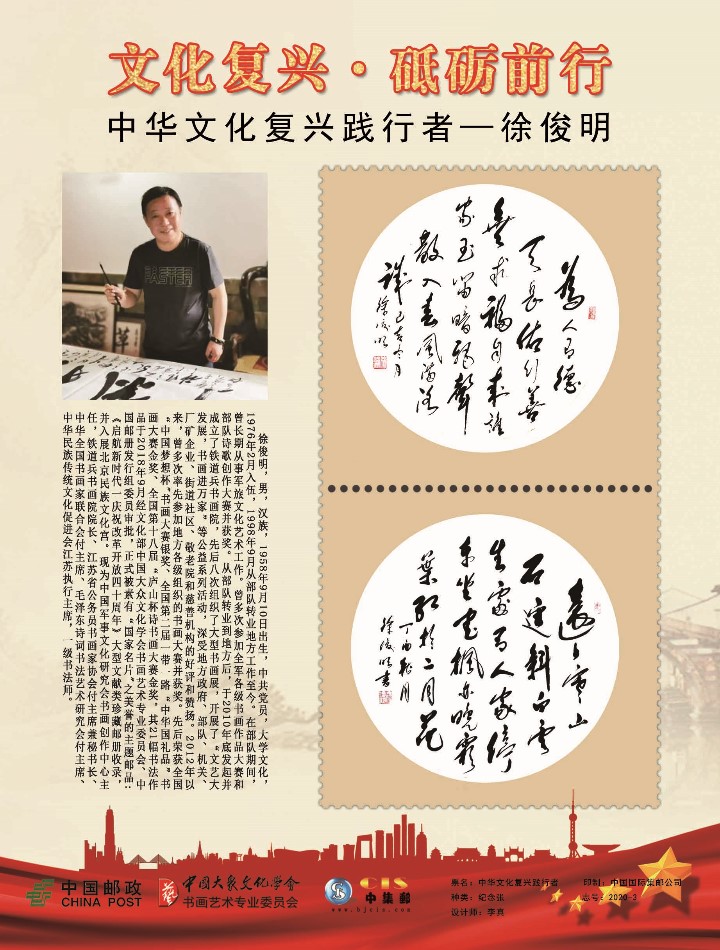 文化复兴·砥砺前行
中华文化复兴践行者—徐俊明
FASTER
徐俊明，男，汉族，1958年9月10日出生，中共党员，大学文化，
1976年2月入伍，1998年9月从部队转业地方工作至今。在部队期间，
曾长期从事军旅文化艺术工作。曾多次参加全军各级书画作品大赛和
部队诗歌创作大赛并获奖。从部队转业到地方后，于2010年底发起并
成立了铁道兵书画院，先后八次组织了大型书画展，开展了“文艺大
发展，书画进万家”等公益系列活动，深受地方政府、部队、机关、
厂矿企业、街道社区、敬老院和慈善机构的好评和赞扬。2012年以
来，曾多次率先参加地方各级组织的书画大赛并获奖。先后荣获全国
“中国梦想杯”书画大赛银奖、全国第二届一带一路“中华国礼品”书
画大赛金奖、全国第十八届“庐山杯诗书画大赛金奖，其21幅书法作
品于2018年9月经文化部中国大众文化学会书画艺术专业委员会、中
国邮册发行组委员审批，正式被素有“国家名片”之美誉的主题邮品：
《启航新时代一庆祝改革开放四十周年》大型文献类珍藏邮册收录，
并入展北京民族文化宫。现为中国军事文化研究会书画创作中心主
任，铁道兵书画院院长、江苏省公务员书画家协会付主席兼秘书长、
中华全国书画家联合会付主席、毛泽东诗词书法艺术研究会付主席、
中华民族传统文化促进会江苏执行主席，一级书法师。
为人有德
天长佑行善
无求福自来谁
家玉笛暗飞声
散入春风满洛
城
己亥冬月
徐俊明
远上寒山
石径斜白云
生处有人家停
车坐爱枫林晚霜
叶红于二月花
丁酉秋月
徐俊明书
中国邮政
CHINA POST
中国大众文化学会
书画艺术专业委员会
CIS
中集邮
票名：中华文化复兴践行者
种类：纪念张
设计师：李真
印制：中国国际集邮公司
志号：2020-3